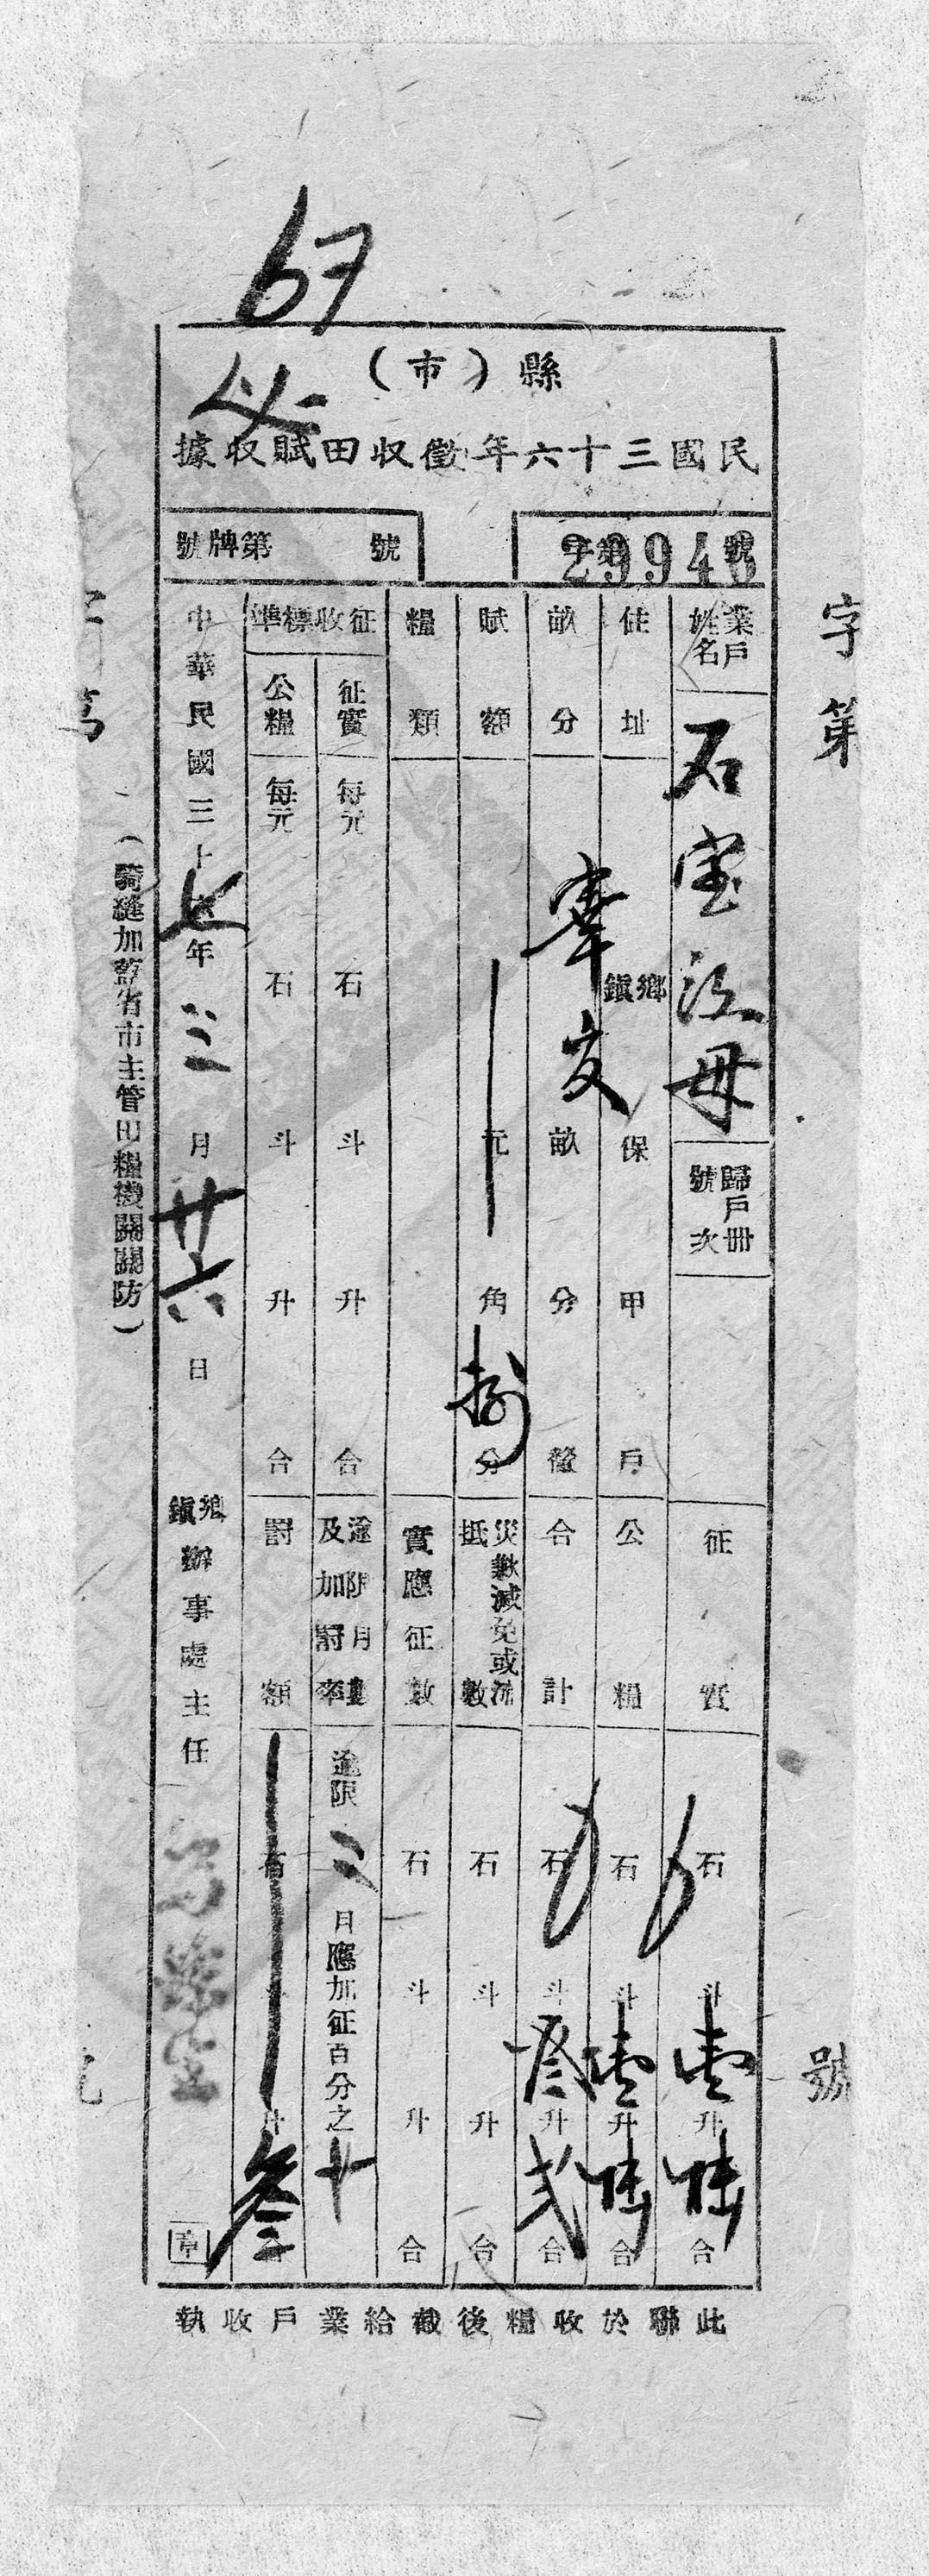 67
縣（市）
民國三十六年徵收田賦收據
字第29946號
號牌第 號
業戶姓名 石宝江母 歸戶冊號次
征實 石 斗 壹升 陸合
住址 鄉鎮 保 甲 戶
公糧 石 斗 壹升 陸合
畝分 畝 分 釐
合計 石 斗 叁升 弍合
賦額 元 角 捌分
災歉減免或流抵數 石 斗 升 合
糧類
實應征數 石 斗 升 合
征收標準
征實 每元 石 斗 升 合
逾限月數及加罰率 逾限 三 月應加征百分之 十
公糧 每元 石 斗 升 合
罰額 石 斗 升 叁合
中華民國三十七年 三 月 廿六 日 鄉鎮辦事處主任 章
（騎縫加蓋省市主管田糧機關關防）
此聯於收糧後截給業戶收執
字第 號